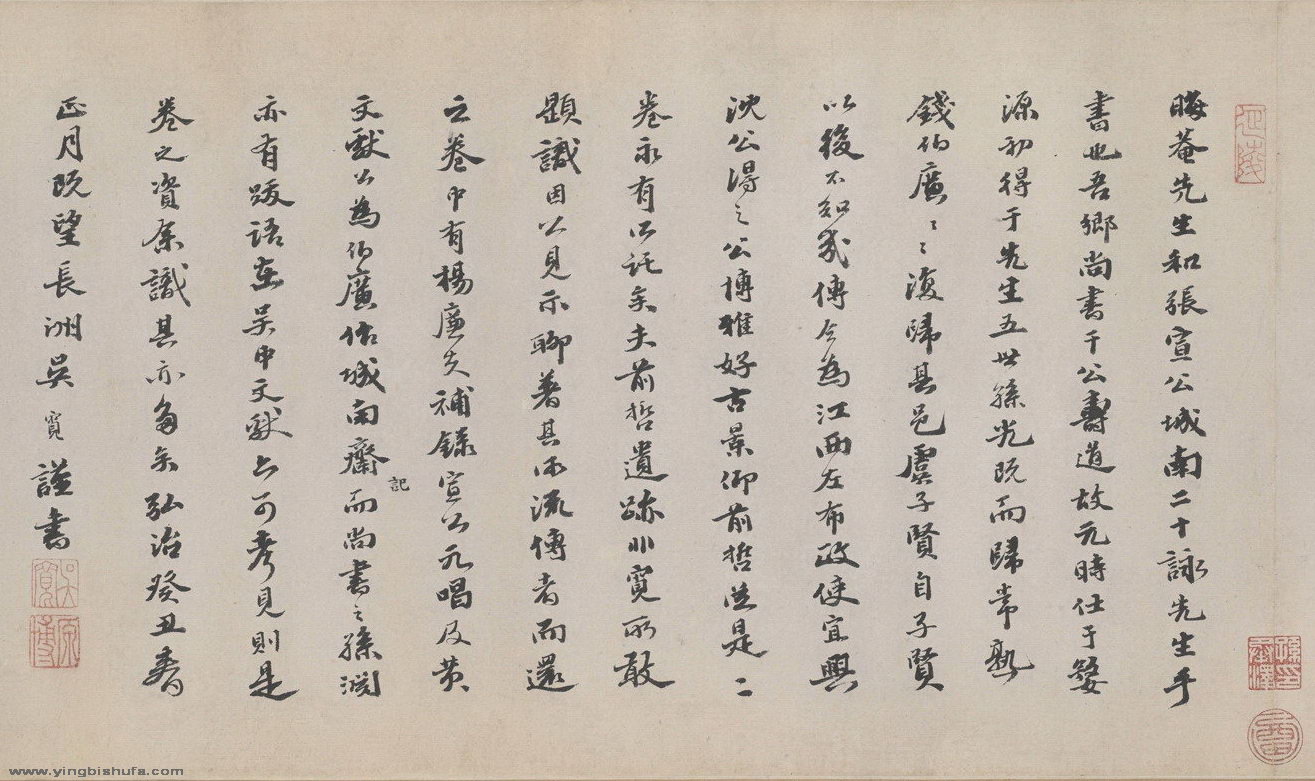 晦菴先生和張宣公城南二十詠先生手
書也吾鄉尚書干公壽道故元時仕于婺
源初得于先生五世孫光既而歸常熟
錢伯廣〻〻復歸其邑虞子賢自子賢
以後不知幾傳今為江西左布政使宜興
沈公得之公博雅好古景仰前哲以是二
卷永有所託矣夫前哲遺跡非寬所敢
題識因以見示聊著其所流傳者而還
之卷中有楊廉夫補錄宣公元唱及黃
文獻公為伯廣作城南齋記而尚書之孫淵
亦有跋語在吳中文獻亦可考見則是
卷之資余識其亦多矣弘治癸丑春
正月既望長洲吳寬謹書
吳寬
原博
www.yingbishufa.com